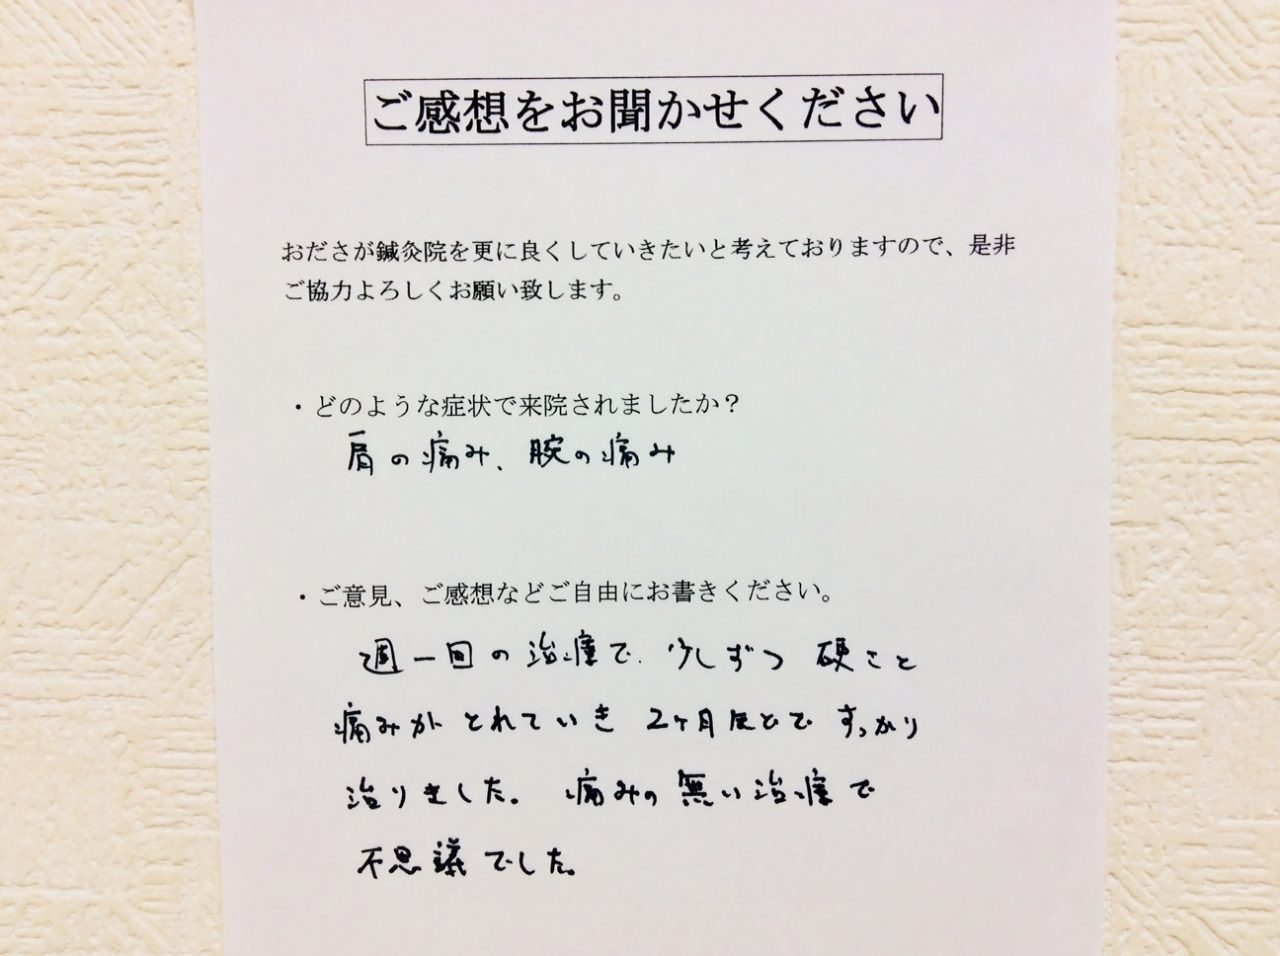 ご感想をお聞かせください
おださが鍼灸院を更に良くしていきたいと考えておりますので、是非
ご協力よろしくお願い致します。
・どのような症状で来院されましたか？
肩の痛み、腕の痛み
・ご意見、ご感想などご自由にお書きください。
週一回の治療で、少しずつ硬さと
痛みがとれていき2ヶ月ほどですっかり
治りました。痛みの無い治療で
不思議でした。